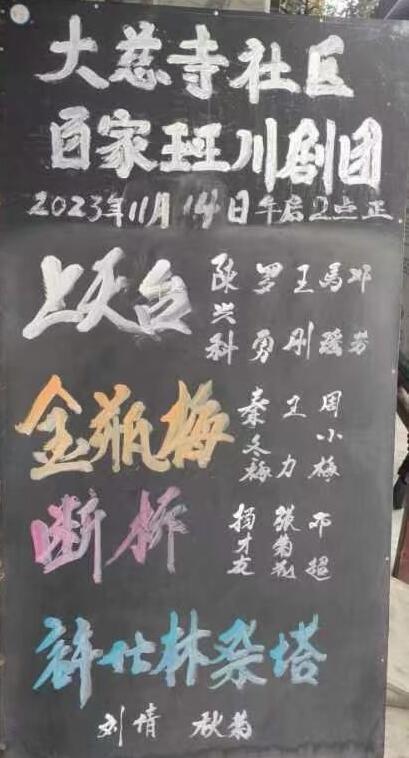 大慈寺社区
百家班川剧团
2023年11月14日午后2点正
上天台
陈兴科 罗勇 王刚 馬强 邓芳
金瓶梅
秦冬梅 王力 周小梅
断桥
杨才友 張菊花 邓超
許仕林祭塔
刘倩 秋菊